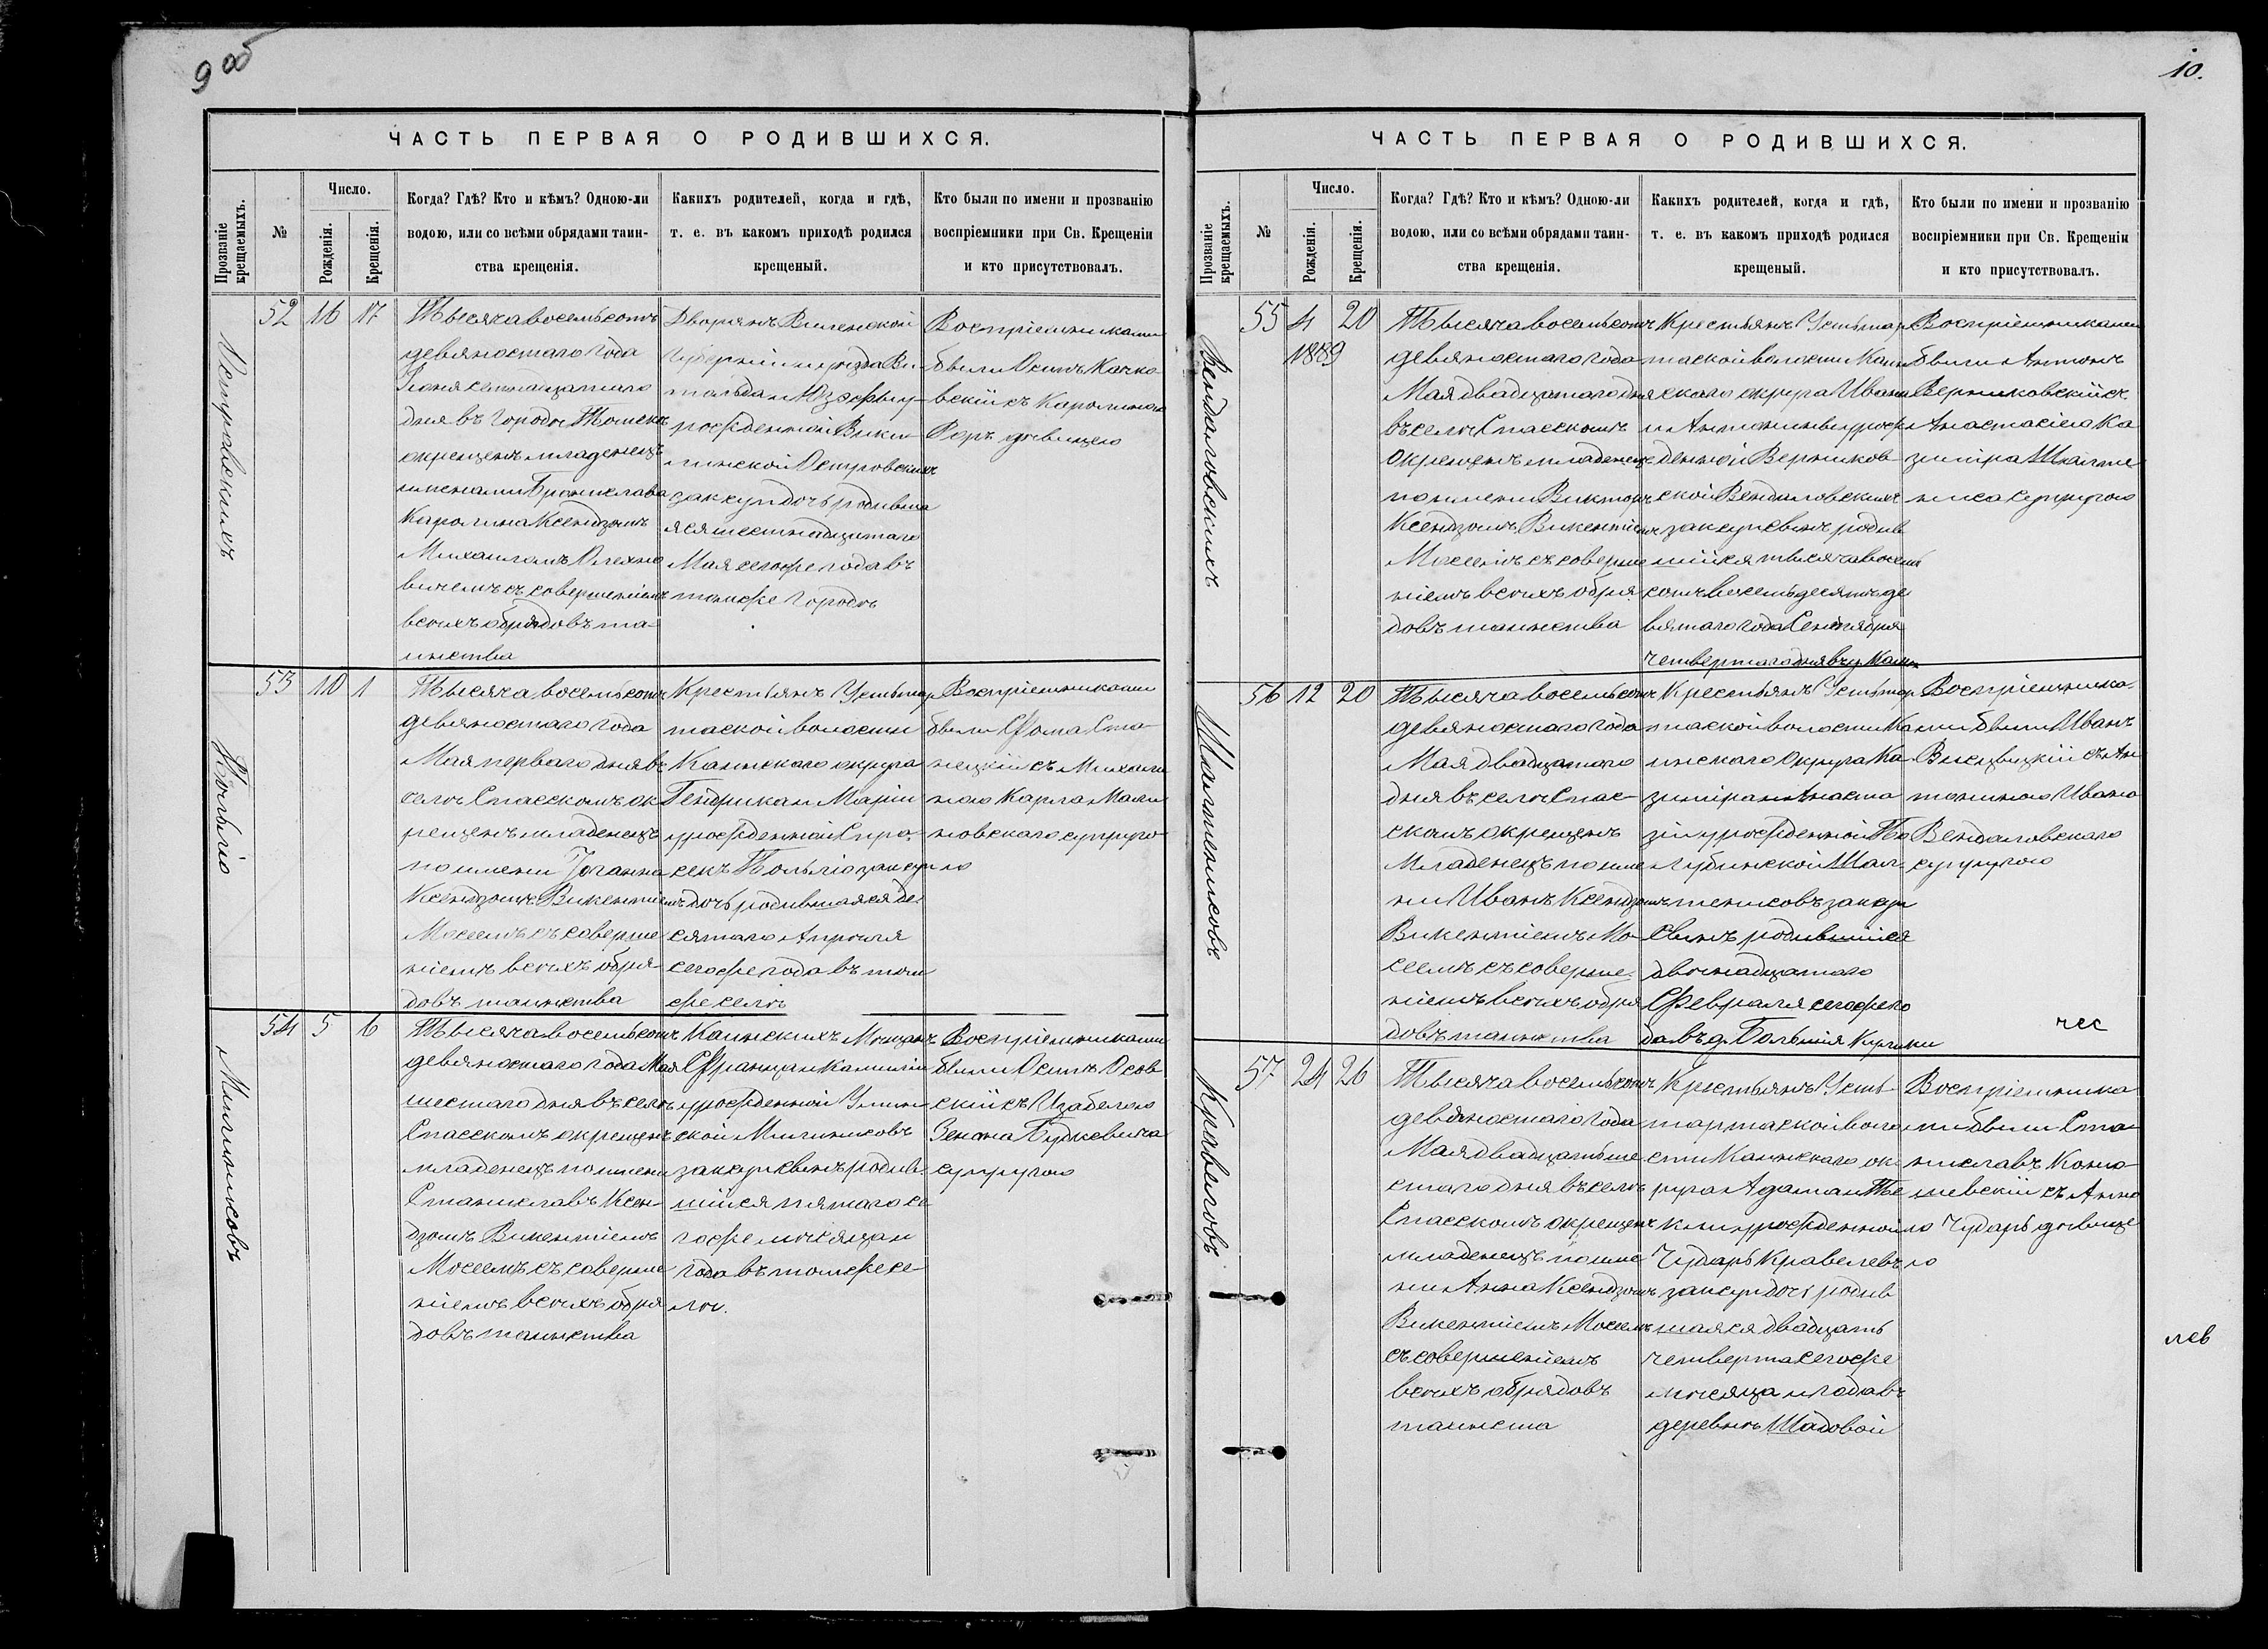 9 об
ЧАСТЬ ПЕРВАЯ О РОДИВШИХСЯ.
Прозваніе крещаемыхъ.
№
Число.
Рожденія.
Крещенія.
Когда? Гдѣ? Кто и кѣмъ? Одною-ли
водою, или со всѣми обрядами таин-
ства крещенія.
Какихъ родителей, когда и гдѣ,
т. е. въ какомъ приходѣ родился
крещеный.
Кто были по имени и прозванію
воспріемники при Св. Крещеніи
и кто присутствовалъ.
52 16 17
Тысяча восемьсотъ
девяностаго года
Іюня семнадцатаго
дня въ городѣ Томскѣ
окрещенъ младенецъ
именами Бронислава
Каролина Ксендзомъ
Михаиломъ Олехно
вичемъ съ совершеніемъ
всѣхъ обрядовъ та-
инства
Дворянъ Виленской
Губерніи и уѣзда Ви
тольда и Юзефы у-
рожденной
Островскихъ
зак. суп. дочь родивша
яся шестнадцатаго
Мая сегоже года въ
томже городѣ
Воспріемниками
были Осипъ Качко
вскій съ Каролиною
дѣвицею
53 10 1
Польліо
Тысяча восемьсотъ
девяностаго года
Мая перваго дня въ
селѣ Спасскомъ ок
рещенъ младенецъ
по имени Іоганна
Ксендзомъ Викентіемъ
Мосеемъ съ соверше
ніемъ всѣхъ обря-
довъ таинства
Крестьянъ Устьтар
таской волости
Каинскаго округа
Гендрика и Маріи
урожденной Спро-
секъ Польліо зак. суп
дочь родившаяся де
сятаго Апрѣля
сегоже года въ том
же селѣ
Воспріемниками
были Фома Ста
нецкій съ Михали
ною Карла Мали
новскаго супруго
ю
54 5 6
Милинисовъ
Тысяча восемьсотъ
девяностаго года Мая
шестаго дня въ селѣ
Спасскомъ окрещенъ
младенецъ по имени
Станиславъ Ксен
дзомъ Викентіемъ
Мосеемъ съ соверше
ніемъ всѣхъ обря
довъ таинства
Каинскихъ Мѣщанъ
Франца и Камиліи
урожденной Улин
ской Милинисовъ
зак. суп. сынъ родив-
шійся пятаго се
гоже мѣсяца и
года въ томже се-
лѣ.
Воспріемниками
были Осипъ Осов
скій съ Изабелою
Зенона Будкевича
супругою
10.
ЧАСТЬ ПЕРВАЯ О РОДИВШИХСЯ.
Прозваніе крещаемыхъ.
№
Число.
Рожденія.
Крещенія.
Когда? Гдѣ? Кто и кѣмъ? Одною-ли
водою, или со всѣми обрядами таин-
ства крещенія.
Какихъ родителей, когда и гдѣ,
т. е. въ какомъ приходѣ родился
крещеный.
Кто были по имени и прозванію
воспріемники при Св. Крещеніи
и кто присутствовалъ.
55 4 20
1889
Вендаловскихъ
Тысяча восемьсотъ
девяностаго года
Мая двадцатаго дня
въ селѣ Спасскомъ
окрещенъ младенецъ
по имени Викторъ
Ксендзомъ Викентіемъ
Мосеемъ съ соверше
ніемъ всѣхъ обря.
довъ таинства
Крестьянъ Устьтар
таской волости Каин
скаго округа Ивана
и Антонины урож
денной Верников-
ской Вендаловскихъ
зак. суп. сынъ родив
шійся тысяча восемь
сотъ восемьдесятъ де
вятаго года Сентября
четвертаго дня въ г. Каин
Воспріемниками
были Антонъ
Верниковскій съ
Анастасіею Ка
зиміра Шалте
ниса супругою
56 12 20
Шалтенисовъ
Тысяча восемьсотъ
девяностаго года
Мая двадцатаго
дня въ селѣ Спас-
скомъ окрещенъ
младенецъ по име
ни Иванъ Ксендзомъ
Викентіемъ Мо-
сеемъ съ соверше-
ніемъ всѣхъ обря
довъ таинства
Крестьянъ Устьтар
таской волости Ка
инскаго округа Ка-
зиміра и Анаста
зіи урожденной
Шал-
тенисовъ зак. суп
сынъ родившійся
двѣнадцатаго
Февраля сегоже го
да въ д. Большія
Воспріемника-
ми были Иванъ
съ Ан
тониною Ивана
Вендаловскаго
супругою
чес
57 24 26
Кравелевъ
Тысяча восемьсотъ
девяностаго года
Мая двадцать ше
стаго дня въ селѣ
Спасскомъ окрещенъ
младенецъ по име
ни Анна Ксендзомъ
Викентіемъ Мосеемъ
съ совершеніемъ
всѣхъ обрядовъ
таинства
Крестьянъ Усть-
тартаской воло
сти Каинскаго ок-
руга Адама и Те
кли урожденной
Чударь Кравелевъ
зак. суп. дочь родив
шаяся двадцать
четверта сегоже
мѣсяца и года въ
деревнѣ Шадовой
Воспріемника
ми были Ста
ниславъ Коно-
шевскій съ Анно
ю Чударь дѣвице
ю
лев